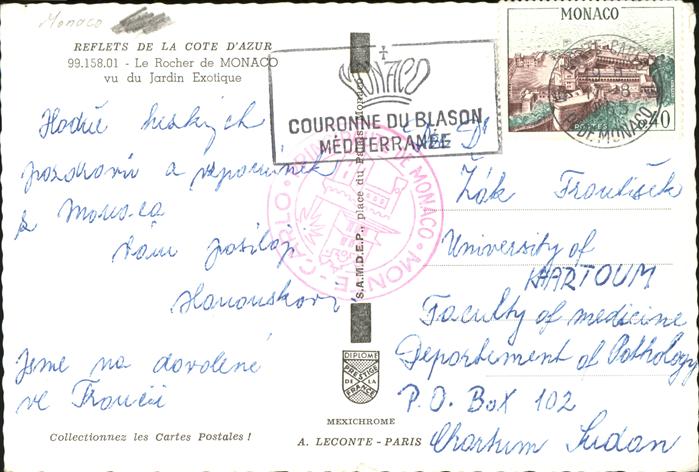 Monaco
REFLETS DE LA COTE D'AZUR
99.158.01 - Le Rocher de MONACO
vu du Jardin Exotique
Hodně hezkých
pozdravů a vzpomínek
z Monaca
Vám posílají
Hanouskovi
Jsme na dovolené
ve Francii
Collectionnez les Cartes Postales !
MONACO
COURONNE DU BLASON
MÉDITERRANÉE
MONTE-CARLO
MONACO
S.A.M.D.E.P., place du Palais, Monaco
DIPLOME
PRESTIGE
DE LA
FRANCE
MEXICHROME
A. LECONTE - PARIS
MONACO
0,40
MONTE-CARLO
PTE DE MONACO
Dr
Žák František
University of
KHARTOUM
Faculty of medicine
Departement of Pathology
P.O. Box 102
Chartum Sudan